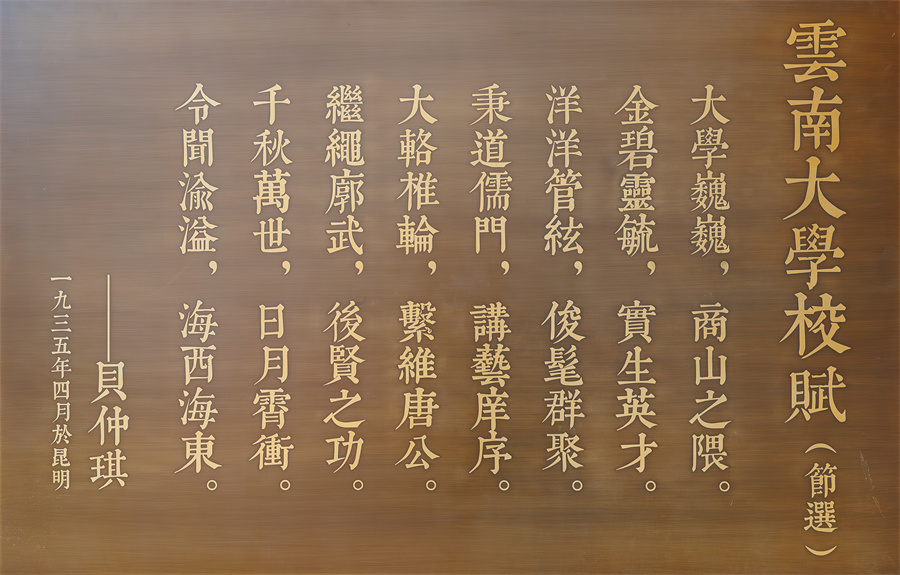 雲南大學校賦（節選）
大學巍巍，商山之隈。
金碧靈毓，實生英才。
洋洋管絃，俊髦群聚。
秉道儒門，講藝庠序。
大輅椎輪，繫維唐公。
繼繩廓武，後賢之功。
千秋萬世，日月霄衝。
令聞渝溢，海西海東。
——貝仲琪
一九三五年四月於昆明